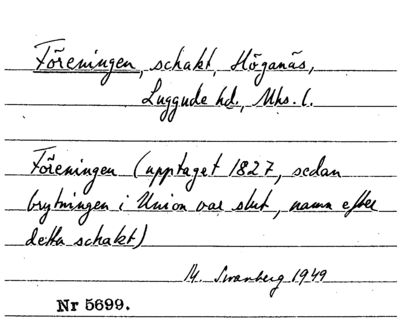 Föreningen, schakt, Höganäs,
Luggude hd., Mhs. l.
Föreningen (upptaget 1827, sedan
brytningen i Union var slut, namn efter
detta schakt)
M. Swanberg 1949
Nr 5699.